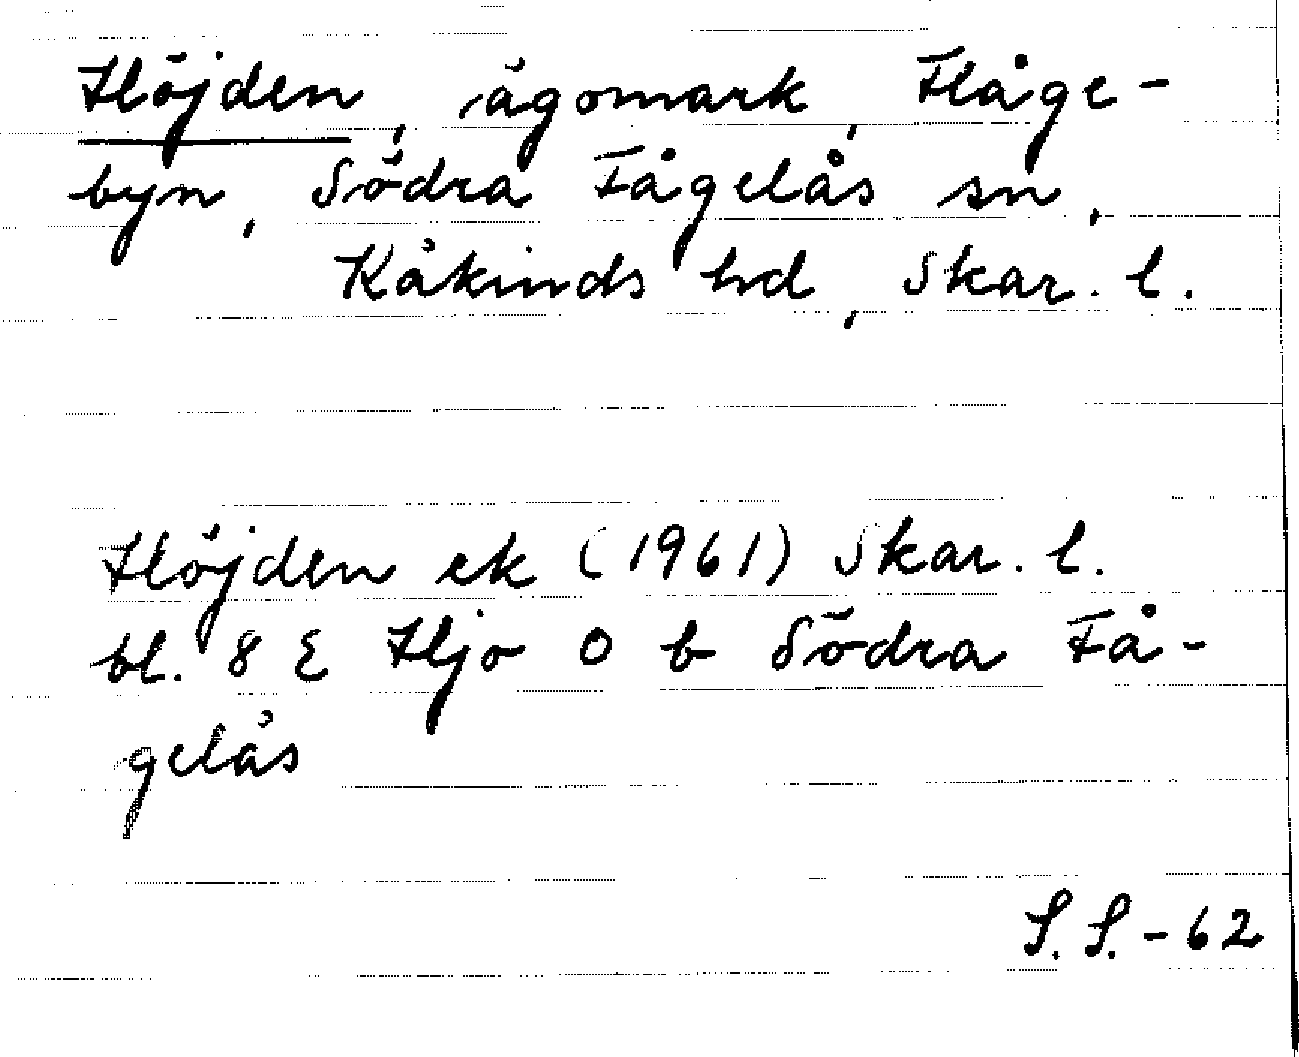 Höjden, ägomark, Flåge-
byn, Södra Fågelås sn,
Kåkinds hd, Skar. l.
Höjden ek (1961) Skar. l.
bl. 8 E Hjo O b Södra Få-
gelås
S. S. - 62